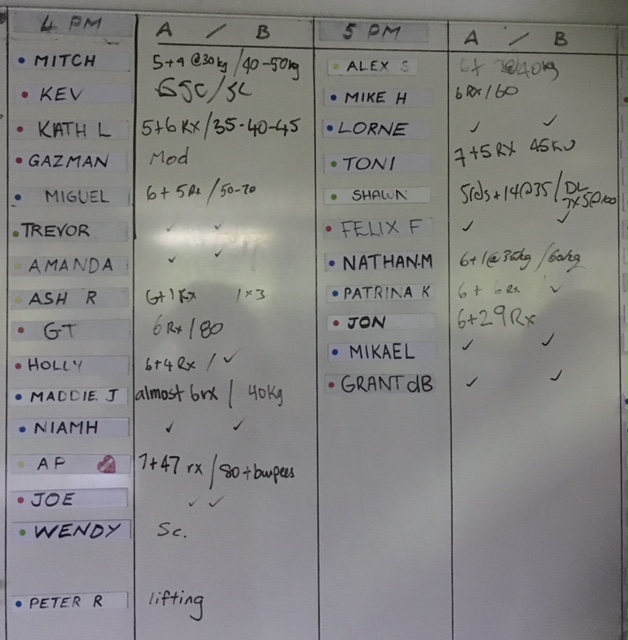 4 PM A / B
MITCH 5+4 @30kg / 40-50kg
KEV SC / SC
KATH L 5+6 RX / 35-40-45
GAZMAN Mod
MIGUEL 6+5 Rx / 50-70
TREVOR ✓ ✓
AMANDA ✓ ✓
ASH R 6+1 Rx 1x3
GT 6 Rx / 80
HOLLY 6+4 Rx / ✓
MADDIE J almost 6rx / 40Kg
NIAMH ✓ ✓
AP 7+47 rx / 80+burpees
JOE ✓ ✓
WENDY Sc.
PETER R lifting
5 PM A / B
ALEX S 6+ @40kg
MIKE H 6 RX / 60
LORNE ✓ ✓
TONI 7+5 RX 45KG
SHAWN 5rds+14@35 / DL
FELIX F ✓ ✓
NATHAN.M 6+1@35kg / 60kg
PATRINA K 6+6 Rx ✓
JON 6+29 Rx
MIKAEL ✓ ✓
GRANT dB ✓ ✓